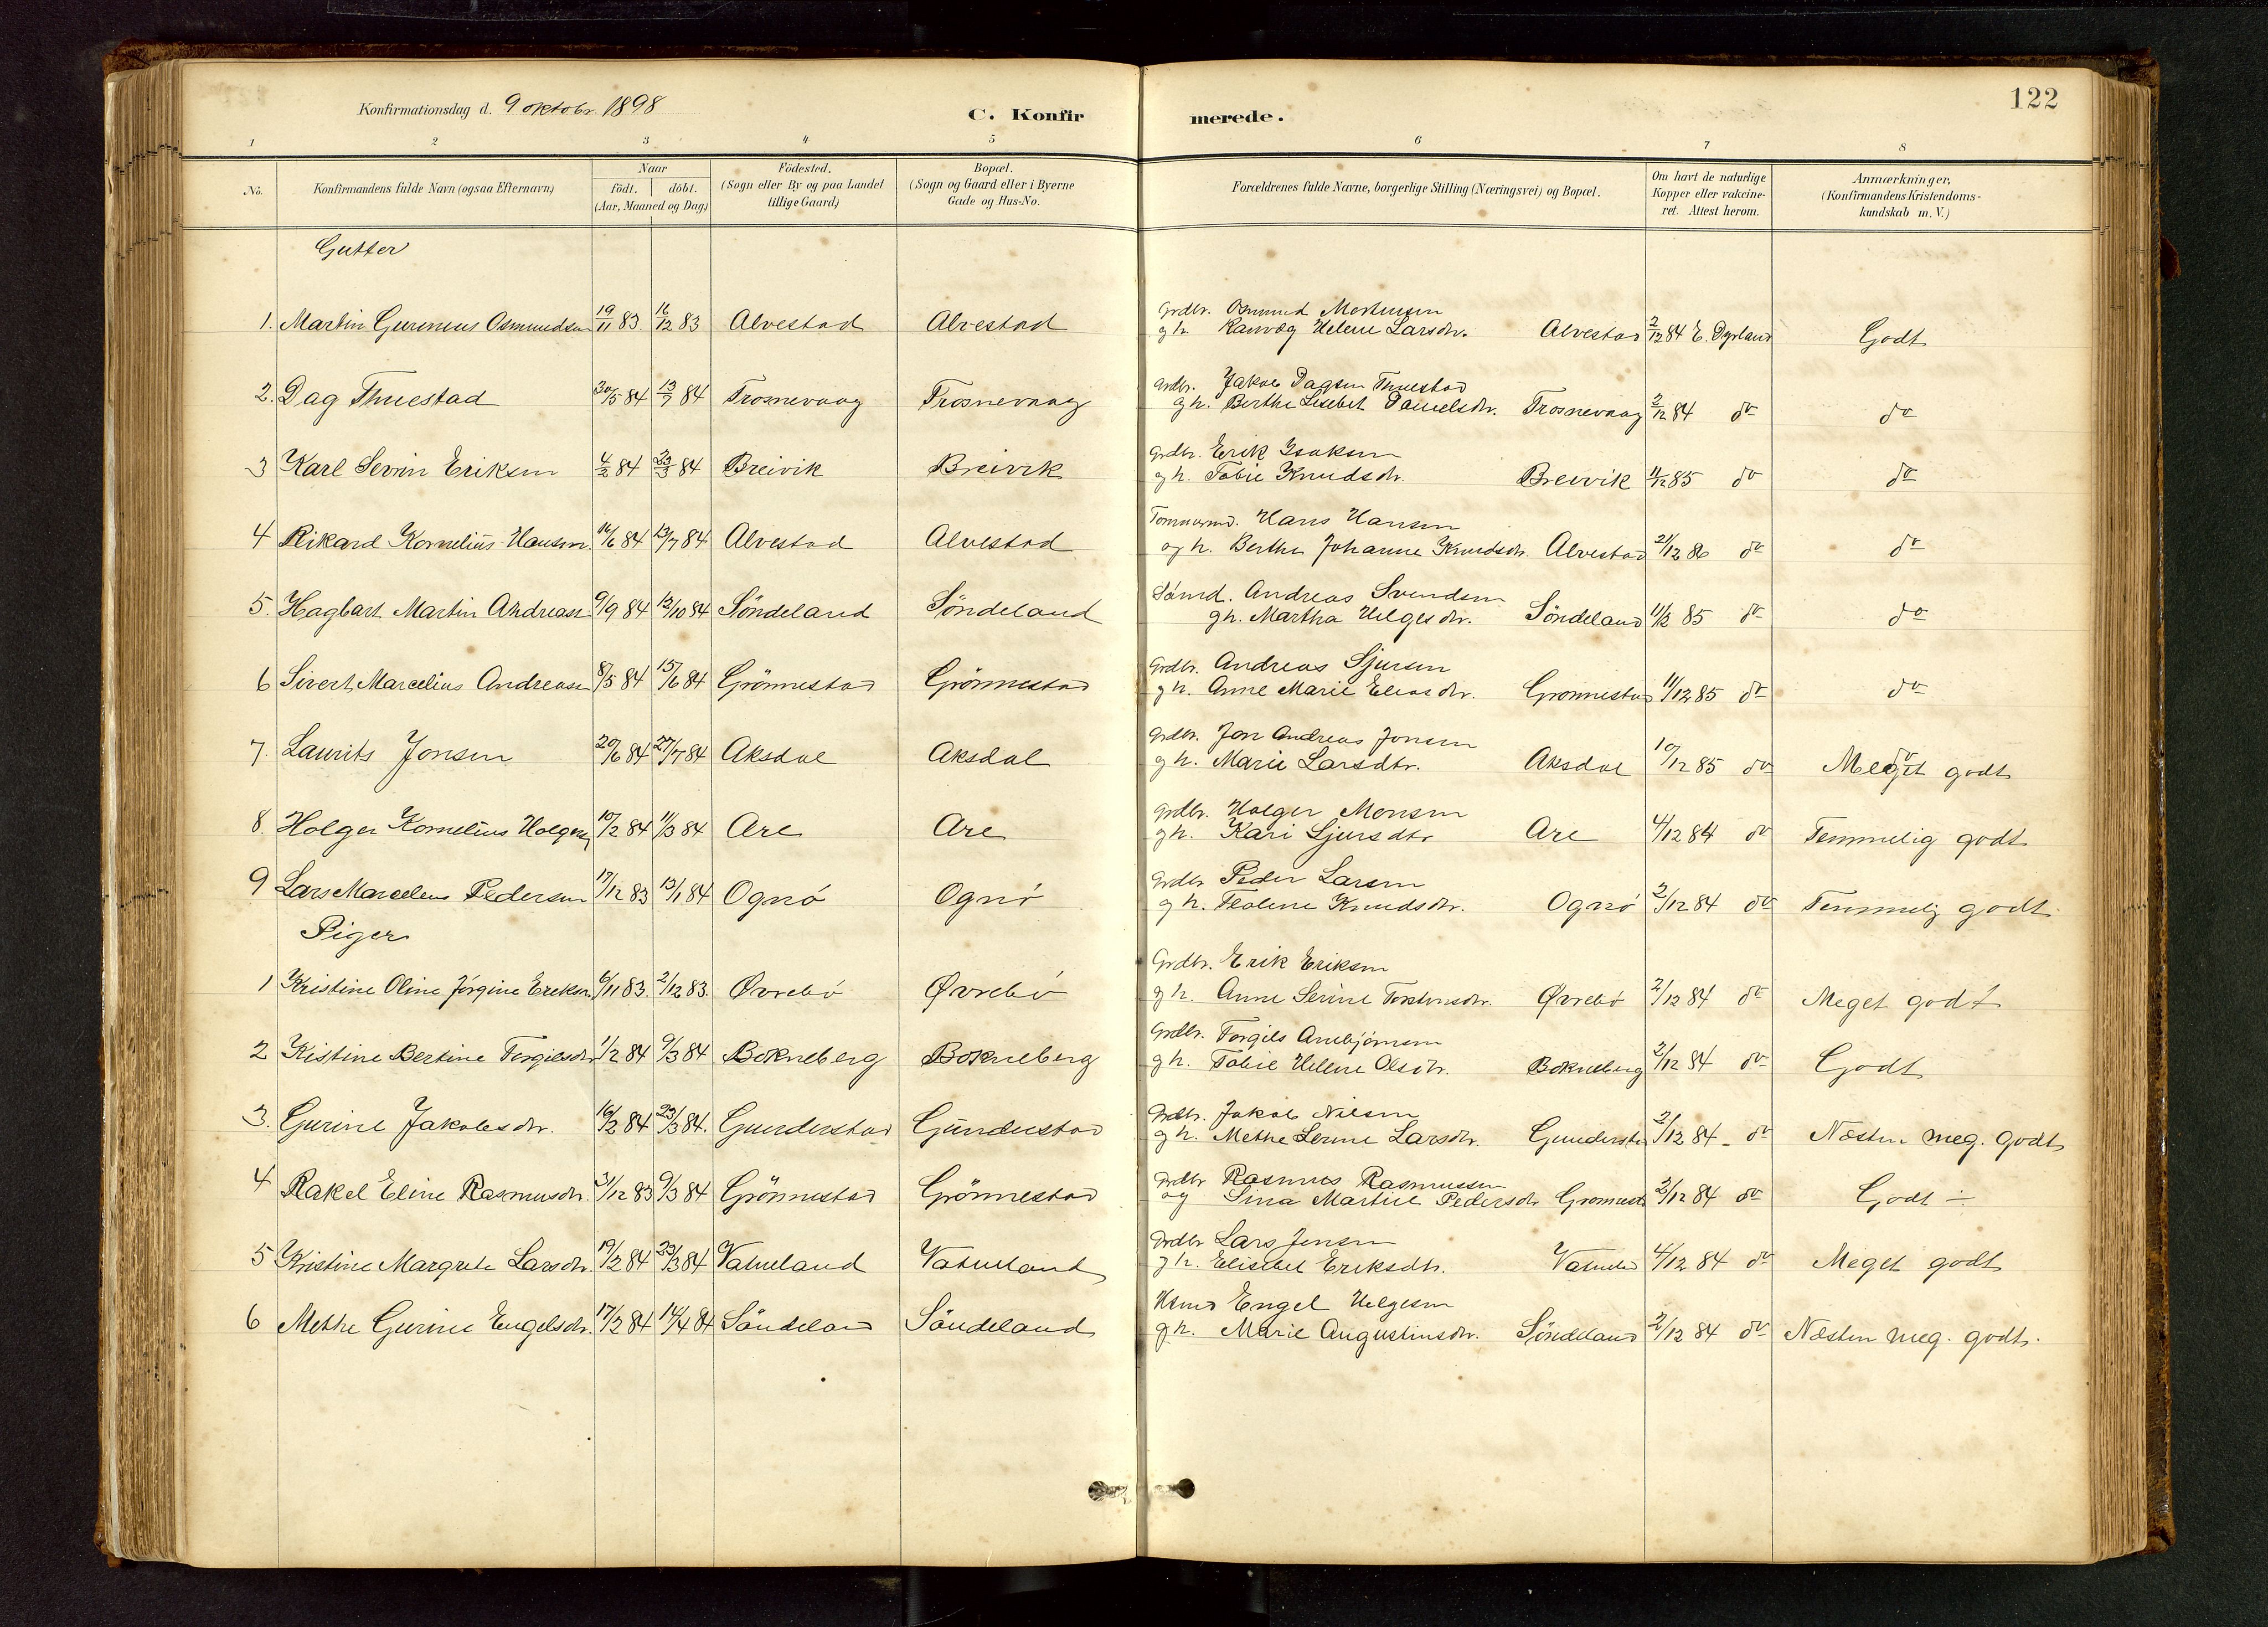 122
Konfirmationsdag d. 9 oktobr. 1898
C. Konfirmerede.
1 2 3 4 5 6 7 8
No. Konfirmandens fulde Navn (ogsaa Efternavn) Naar födt. döbt. (Aar, Maaned og Dag) Födested. (Sogn eller By og paa Landet tillige Gaard) Bopæl. (Sogn og Gaard eller i Byerne Gade og Hus-No. Forældrenes fulde Navne, borgerlige Stilling (Næringsvei) og Bopæl. Om havt de naturlige Kopper eller vakcineret. Attest herom. Anmærkninger, (Konfirmandens Kristendomskundskab m. V.)
Gutter
Grdbr. Osmund Mortensen
1. Martin Gureneus Osmundsen 19/11 83 16/12 83 Alvestad Alvestad g h. Ranvæg Helene Larsdtr. Alvestad 2/12 84 E. Dyrland Godt
Grdbr. Jakob Dagsen Thuestad
2. Dag Thuestad 30/5 84 13/7 84 Trosnevaag Trosnevaag g h. Berthe Lisebet Danielsdtr. Trosnevaag 2/12 84 do do
Grdbr. Erik Isaksen
3 Karl Severin Eriksen 4/2 84 23/3 84 Breivik Breivik g h. Tobie Knudsdtr. Breivik 11/12 85 do do
Tommermd. Hans Hansen
4 Rikard Kornelius Hansen. 16/6 84 13/7 84 Alvestad Alvestad og h. Berthe Johanne Knudsdtr. Alvestad 21/12 86 do do
Sömd. Andreas Svendsen
5. Hagbart Martin Andreasn 9/9 84 12/10 84 Söndeland Söndeland g h. Martha Helgesdtr. Söndeland 11/12 85 do do
Grdbr. Andreas Sjursen
6 Sivert Marcelius Andreasn 8/5 84 15/6 84 Grönnestad Grönnestad g h. Anne Marie Eliasdtr. Grönnestad 11/12 85 do do
Grdbr. Jon Andreas Jonsen
7. Laurits Jonsen 20/6 84 27/7 84 Aksdal Aksdal g h. Marie Larsdtr. Aksdal 10/12 85 do Meget godt
Grdbr. Holger Monsen
8. Holger Kornelius Holgers. 10/2 84 11/3 84 Are Are g h. Kari Sjursdtr Are 4/12 84 do Temmelig godt
Grdbr Peder Larsen
9 Lars Marcelius Pedersen 17/12 83 13/1 84 Ognö Ognö g h. Tealene Knudsdtr. Ognö 2/12 84 do Temmelig godt.
Piger
Grdbr. Erik Eriksen
1 Kristine Oline Jörgine Eriksn. 6/11 83. 2/12 83. Øvrebö Øvrebö g h. Anne Serine Torstensdtr. Øvrebö 2/12 84 do Meget godt
Grdbr. Torgils Arnbjörnsen
2 Kistine Bertine Torgilsdtr. 1/2 84 9/3 84 Bokneberg Bokneberg g h. Tobie Helene Olsdtr. Bokneberg 2/12 84 do Godt
Grdbr. Jakob Nilsen
3. Gurine Jakobsdtr. 16/2 84 23/3 84. Gunderstad Gunderstad g h. Methe Serine Larsdtr. Gundersta 2/12 84 - do Næsten meg. godt
Grdbr Rasmus Rasmussen
4 Rakel Eline Rasmusdtr. 31/12 83 9/3 84 Grönnestad Grönnestad og Sina Martine Pedersdtr Grönnest 2/12 84 do Godt ÷
Grdbr Lars Jensen
5 Kristine Margrete Larsdtr. 19/2 84 23/3 84 Vatneland Vatneland g h. Elisebet Eriksdtr. Vatnela 4/12 84 do Meget godt
Hsmd Engel Helgesen
6 Methe Gurine Engelsdtr. 17/2 84 14/4 84 Söndeland Söndeland g h. Marie Augustinsdtr. Söndeland 2/12 84 do Næsten meg. godt.